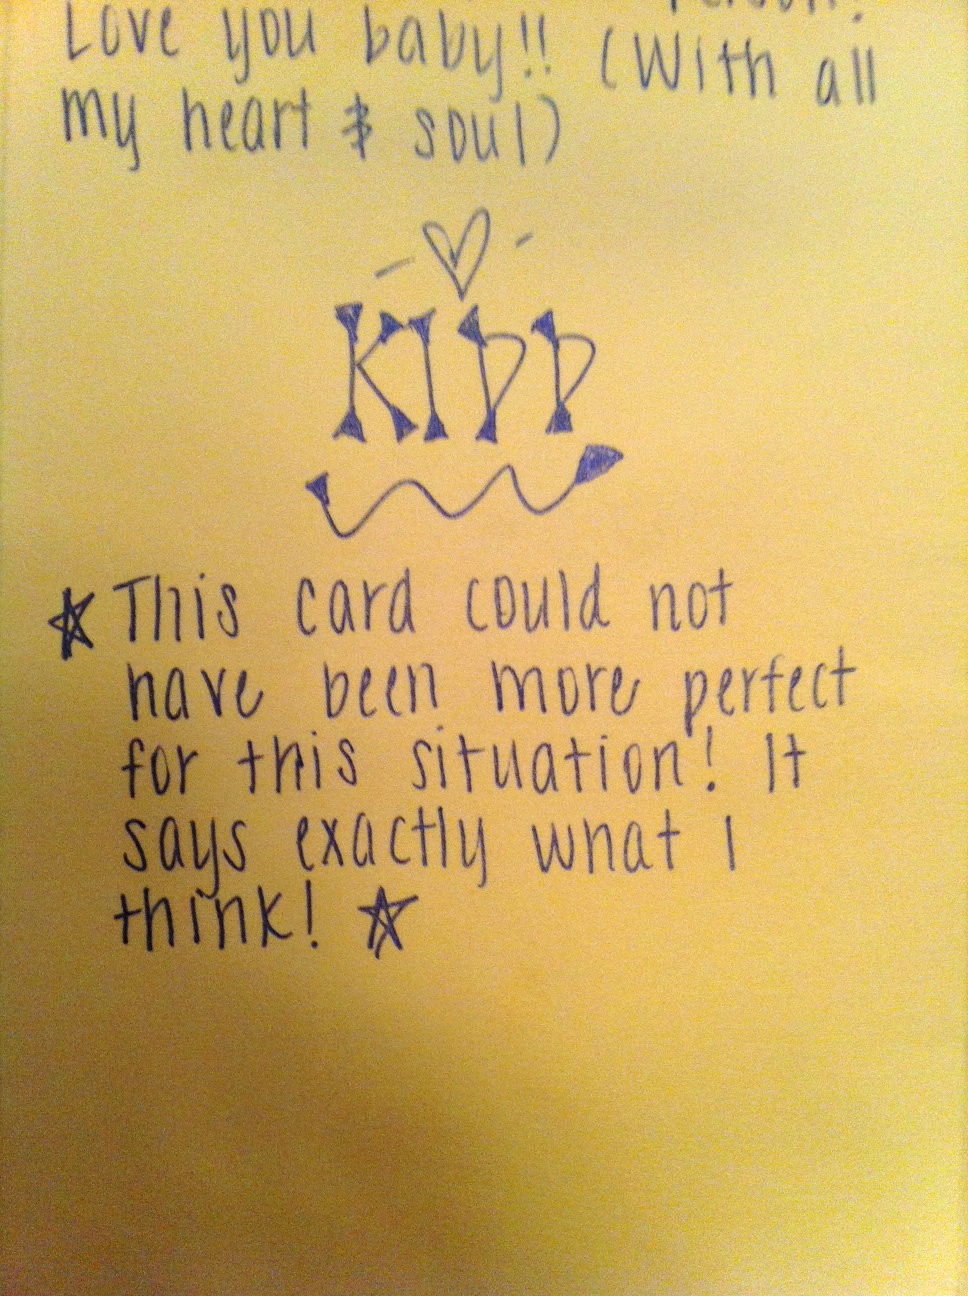 Person!
Love you baby!! (With all
my heart & soul)
KIPP
This card could not
have been more perfect
for this situation! It
says exactly what I
think!